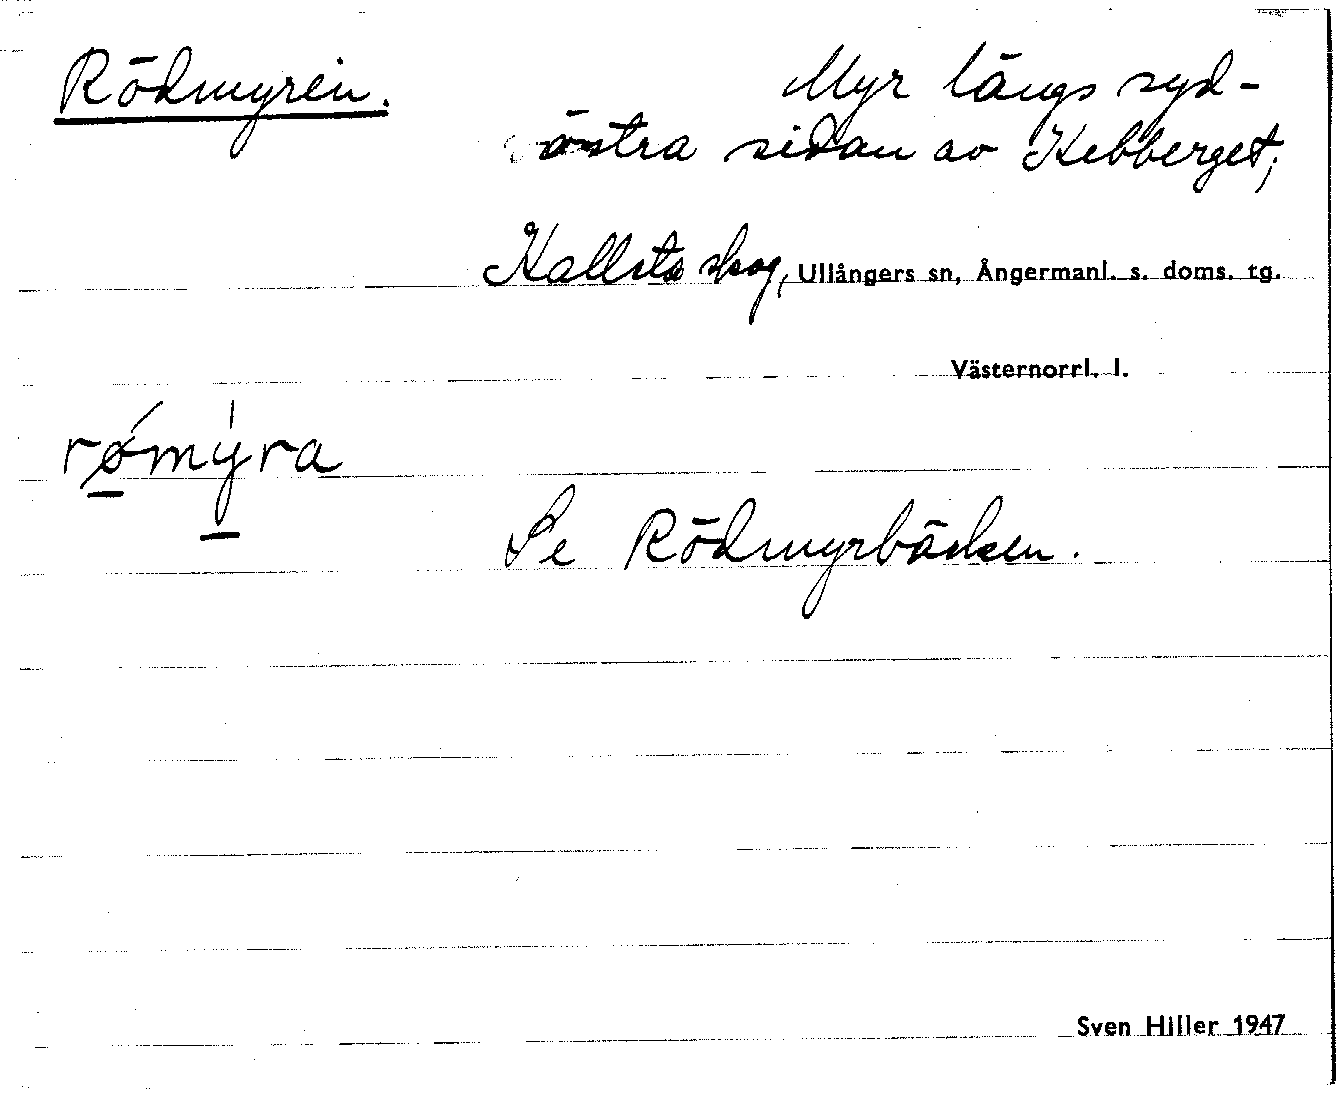 Rödmyren.
Myr längs syd-
östra sidan av Kebberget;
Kallsta skog, Ullångers sn, Ångermanl. s. doms. tg.
Västernorrl. l.
rǿmýra
Se Rödmyrbäcken.
Sven Hiller 1947